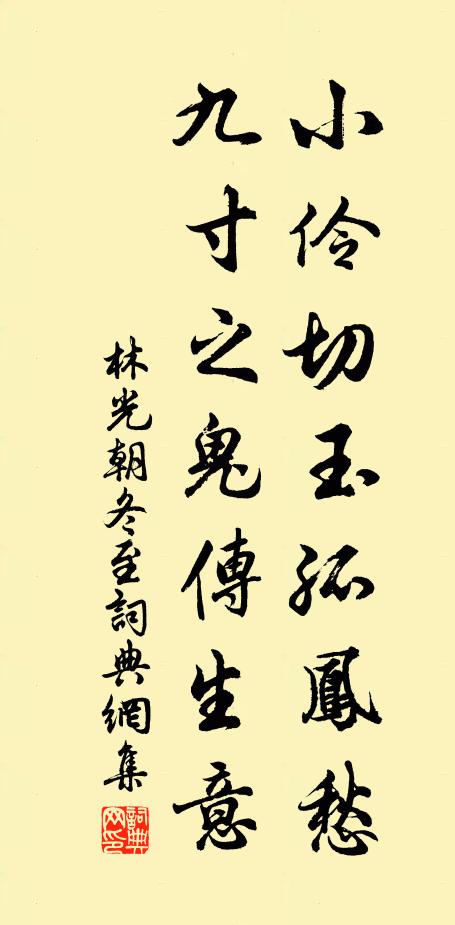 小伶切玉孤鳳愁
九寸之鬼傳生意
林光朝冬至詞典網集
詞典網印